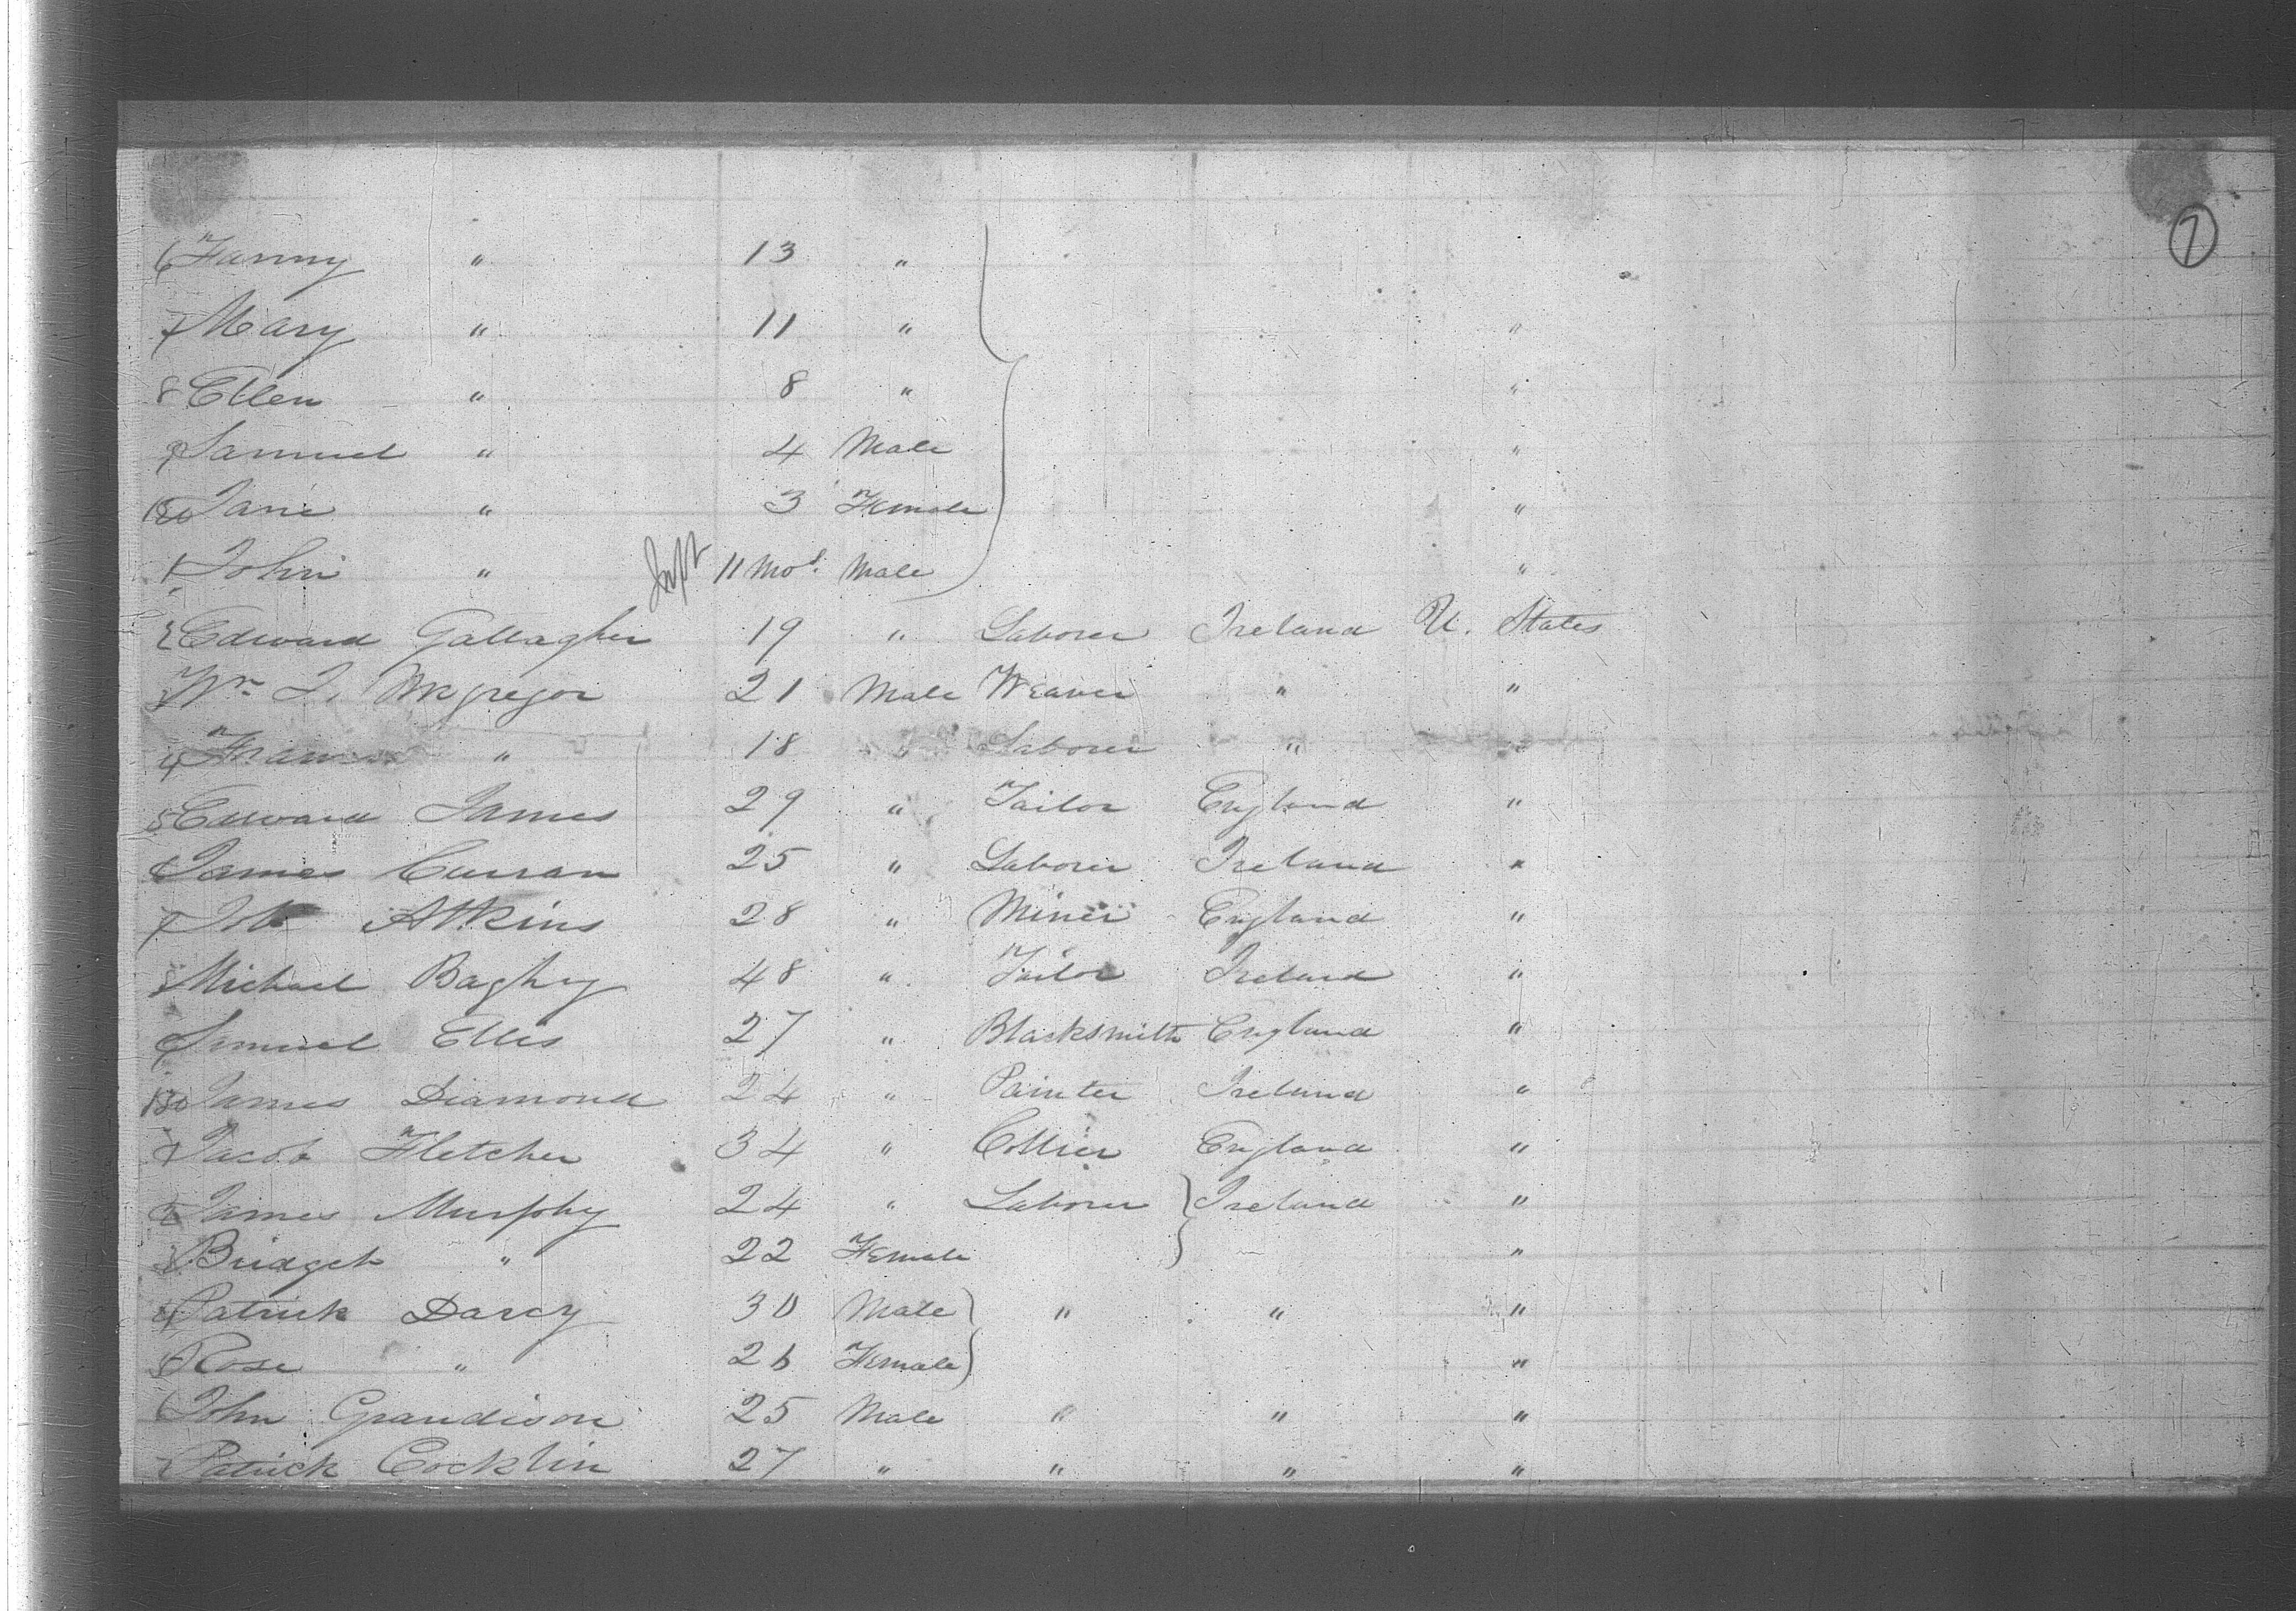 7
6 Fanny " 13 "
7 Mary " 11 " "
8 Ellen " 8 " "
9 Samuel " 4 Male "
120 Jane " 3 Female "
1 John " Inft 11 Mos. Male "
2 Edward Gallagher 19 " Laborer Ireland U. States
3 Wm J. McGregor 21 Male Weaver " "
4 " 18 " Laborer " "
5 Edward James 29 " Tailor England "
6 James Curran 25 " Laborer Ireland "
7 Job Atkins 28 " Miner England "
8 Michael Baghy 48 " Tailor Ireland "
9 Samuel Ellis 27 " Blacksmith England "
130 James Diamond 24 " Painter Ireland "
1 Jacob Fletcher 34 " Collier England "
2 James Murphy 24 " Laborer Ireland "
3 Bridget " 22 Female "
4 Patrick Darcy 30 Male " " "
5 Rose " 26 Female "
6 John Grandison 25 Male " " "
7 Patrick Cocklin 27 " " " "